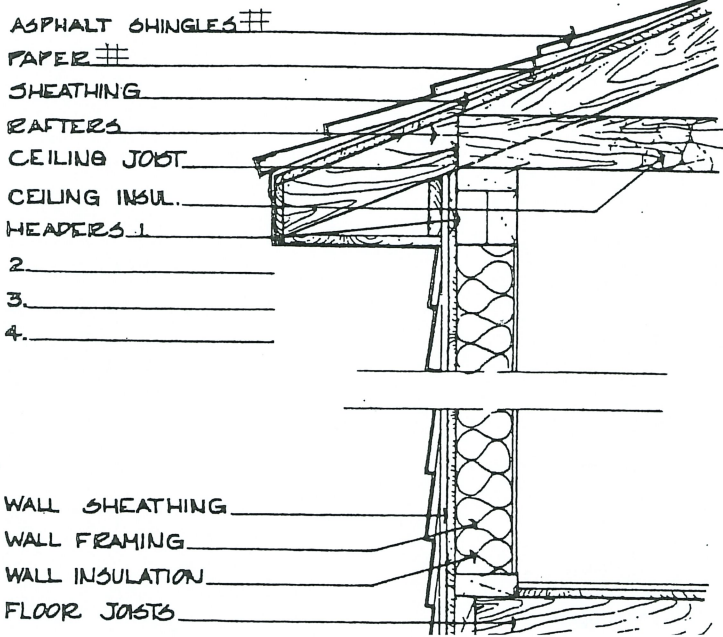 ASPHALT SHINGLES #
PAPER #
SHEATHING
RAFTERS
CEILING JOIST
CEILING INSUL.
HEADERS 1.
2.
3.
4.
WALL SHEATHING
WALL FRAMING
WALL INSULATION
FLOOR JOISTS